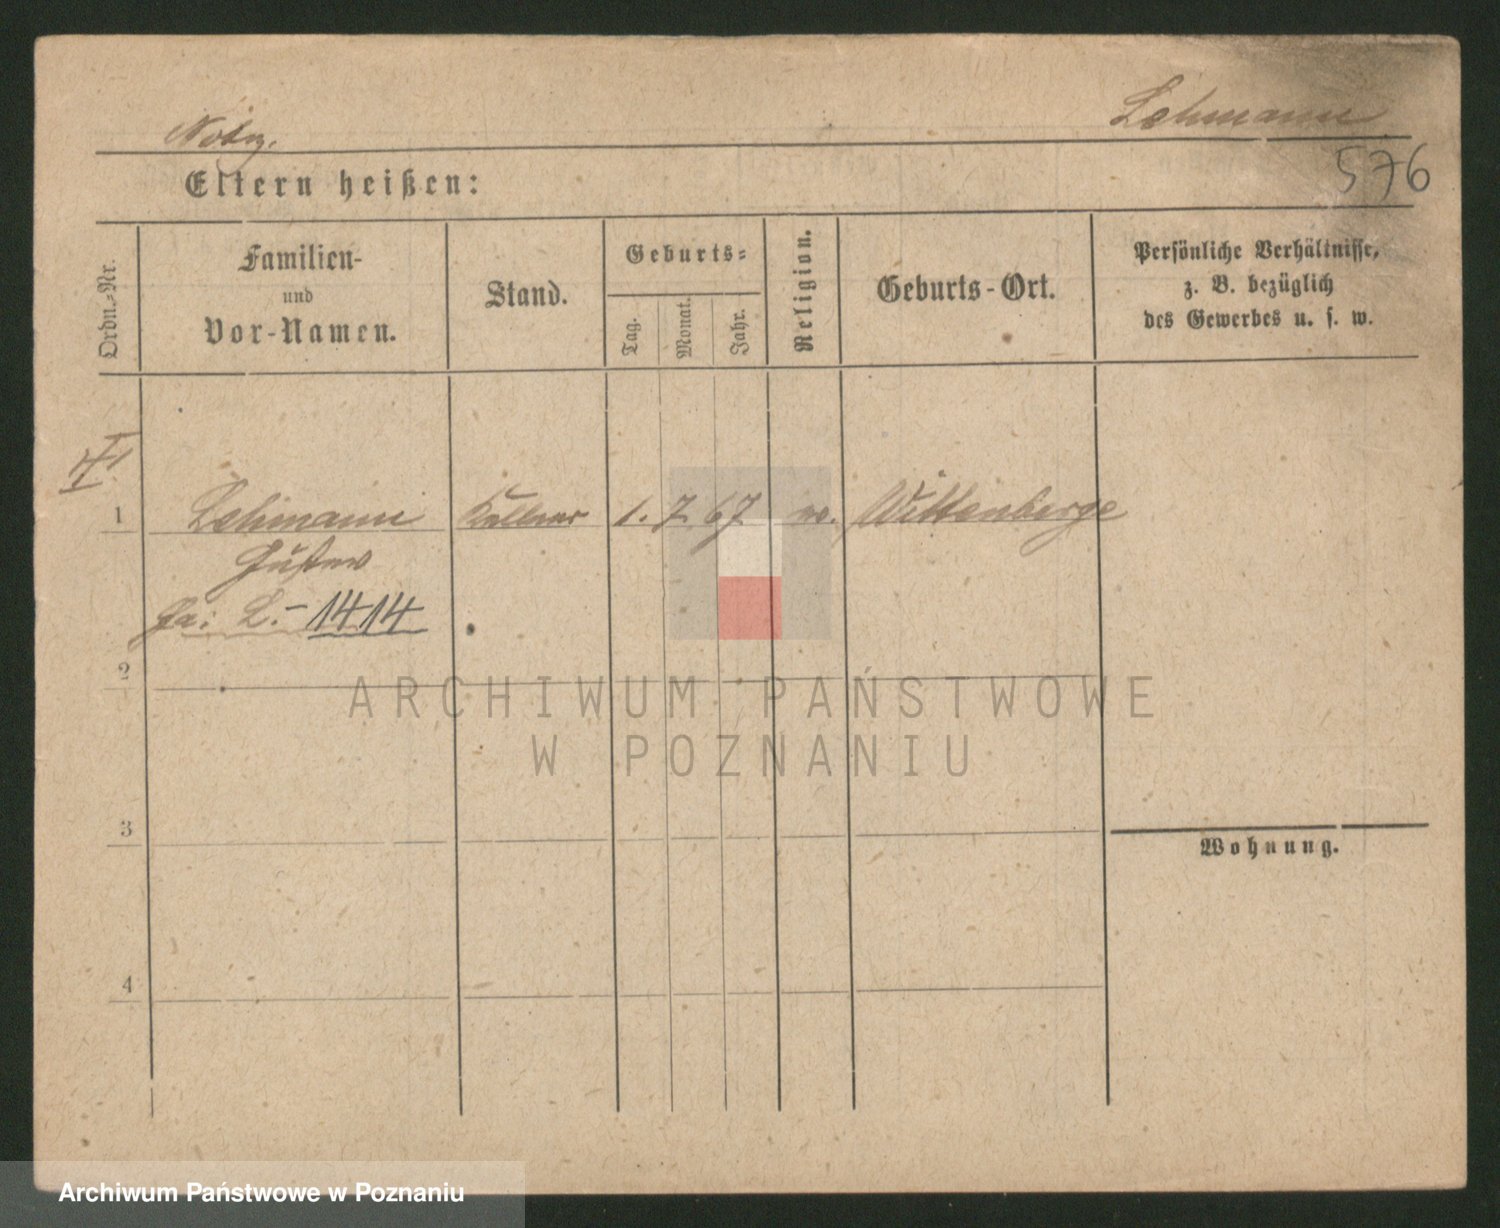 Lehmann
Notiz.
576
Eltern heißen:
Ordn.-Nr.
Familien-
und
Vor-Namen.
Stand.
Geburts-
Tag.
Monat.
Jahr.
Religion.
Geburts-Ort.
Persönliche Verhältnisse,
z. B. bezüglich
des Gewerbes u. s. w.
1 Lehmann Kellner 1. 7. 67 ev. Wittenberge
Gustav
L. - 1414
2
3
4
Wohnung.
ARCHIWUM PAŃSTWOWE
W POZNANIU
Archiwum Państwowe w Poznaniu